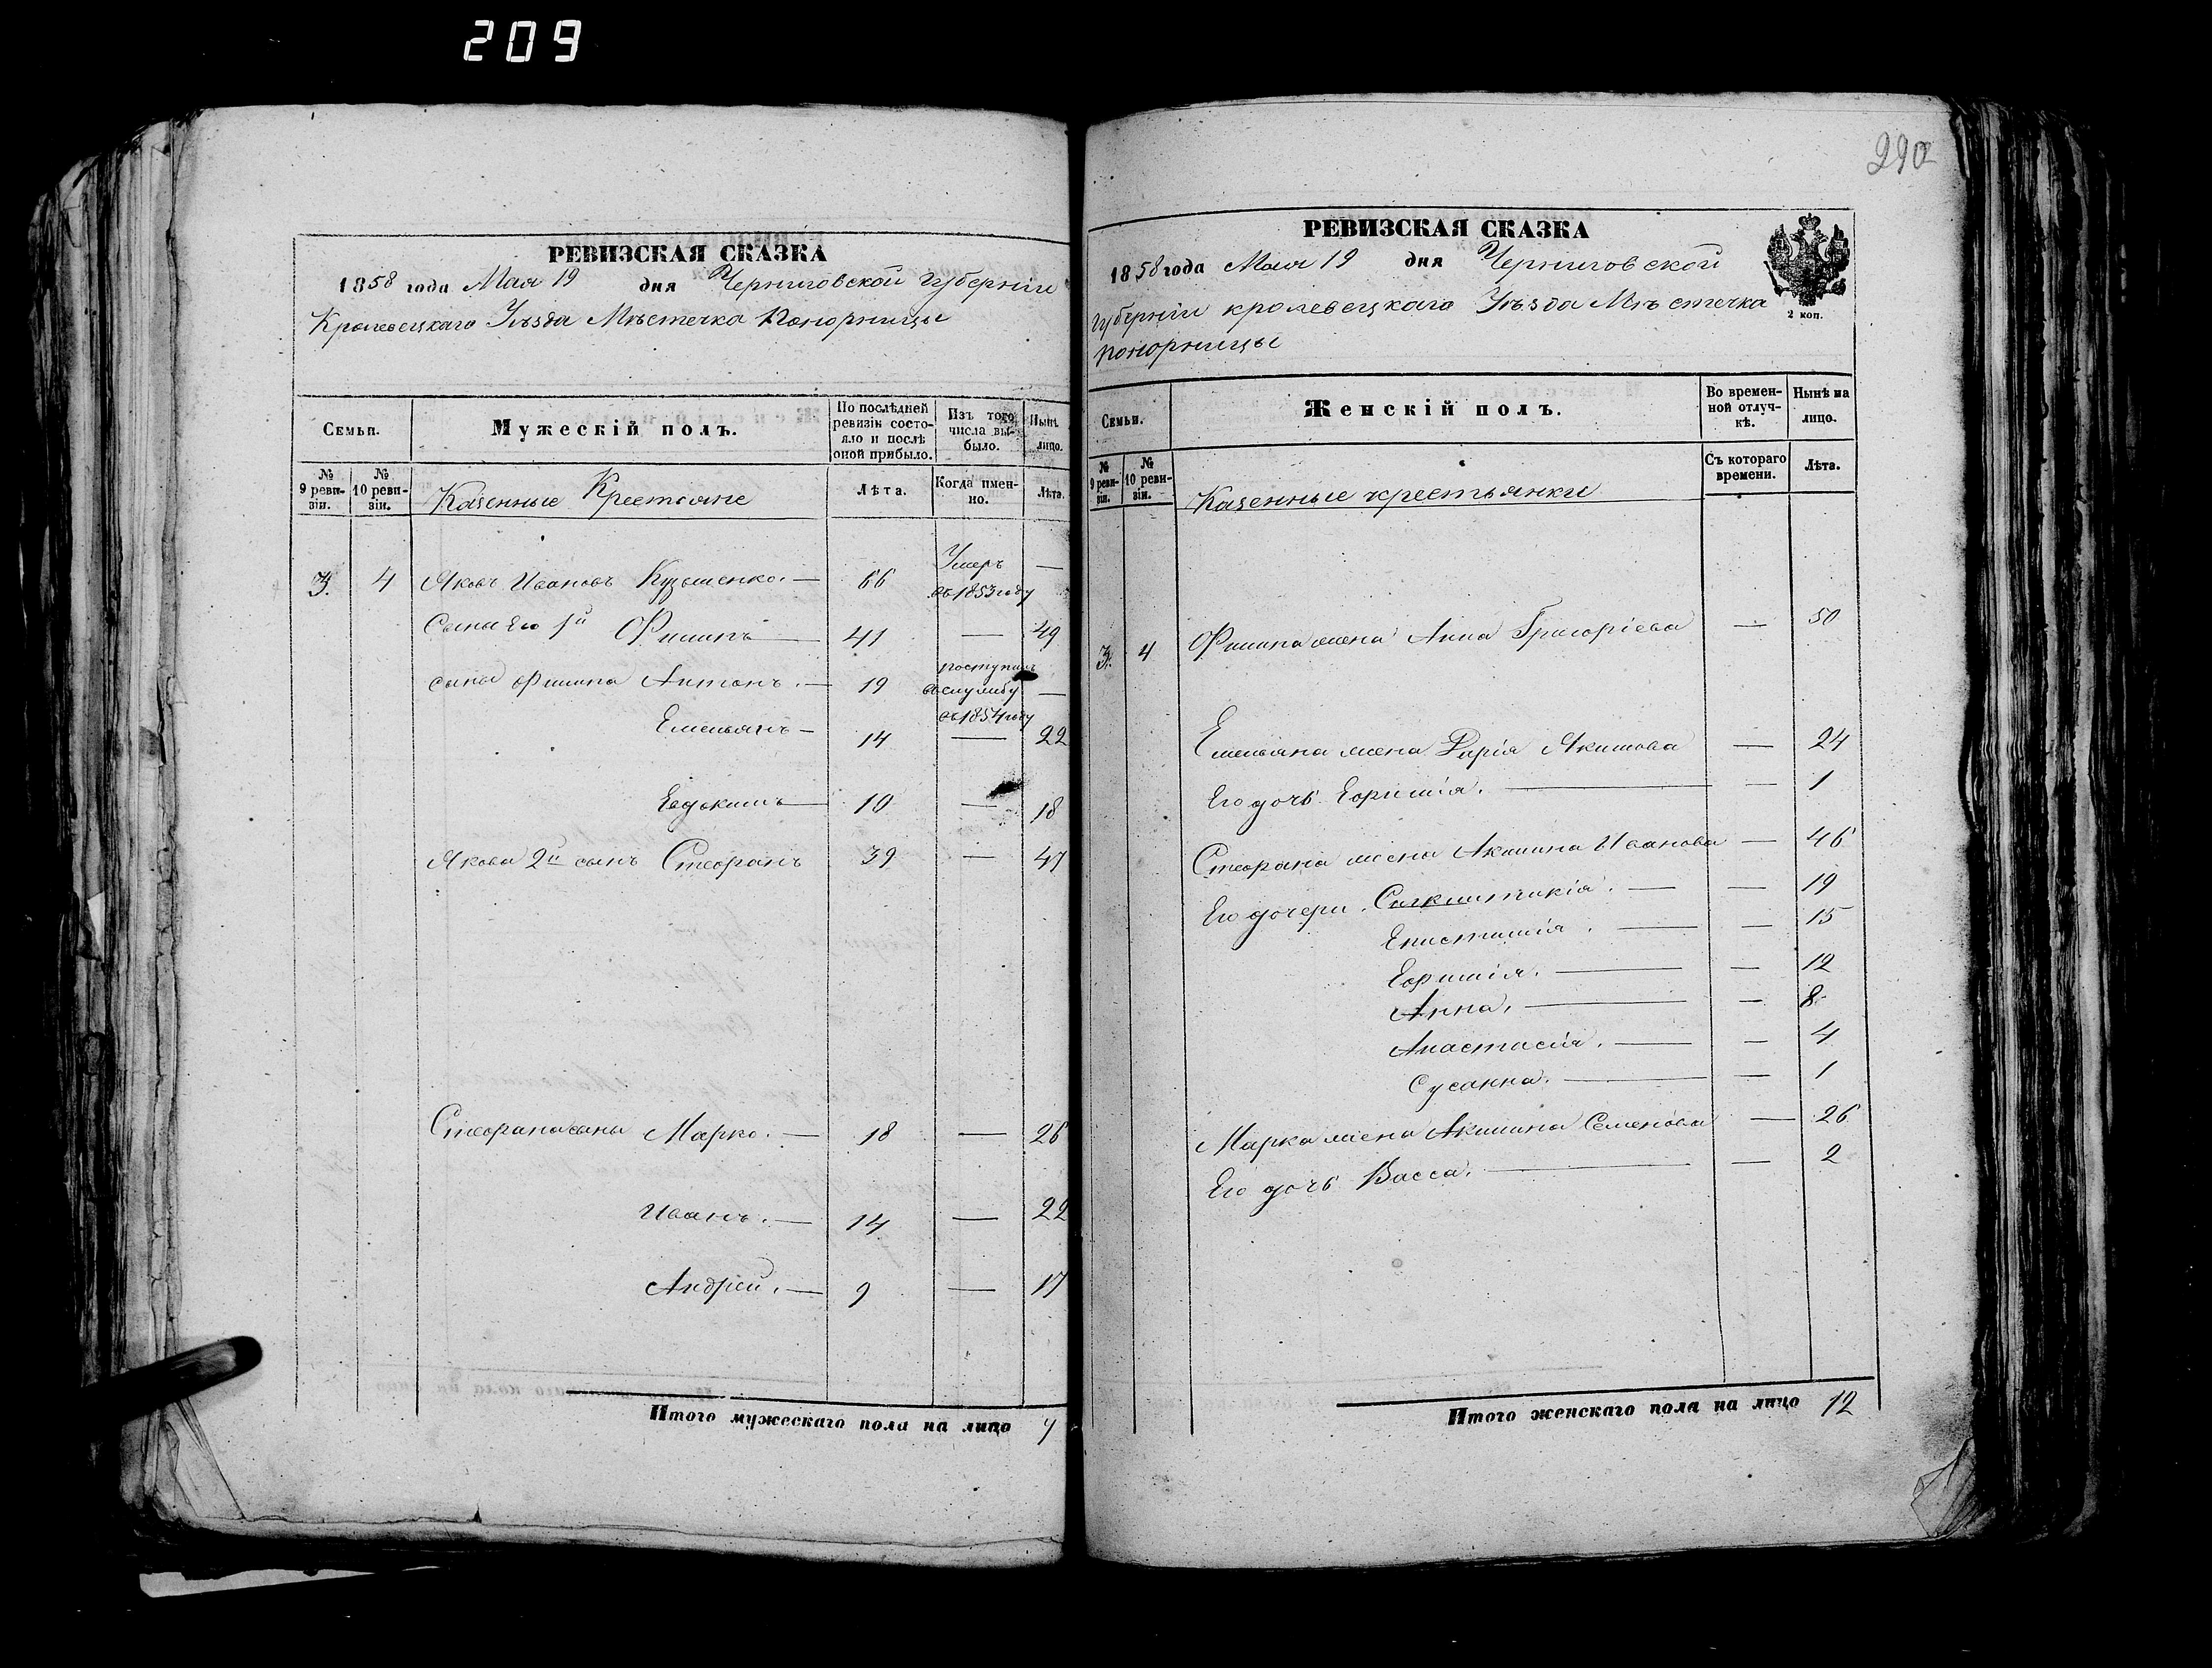 209
РЕВИЗСКАЯ СКАЗКА
1858 года Мая 19 дня Черниговской Губерніи
Кролевецкаго Уѣзда Мѣстечка Понорницы
Семьи. Мужескій полъ. По послѣдней ревизіи состояло и послѣ оной прибыло. Изъ того числа выбыло. Нынѣ лицо.
№ 9 ревизіи. № 10 ревизіи. Казенные Крестьяне Лѣта. Когда именно. Лѣта.
3. 4 Яковъ Ивановъ Кузьменко. — 66 Умеръ въ 1853 году —
Сыны Его 1й Филипъ — 41 — 49
сыны Филипа Антонъ. — 19 поступилъ въ службу въ 1854 году —
Емельянъ — 14 — 22
Евдокимъ — 10 — 18
Якова 2й сынъ Стефанъ 39 — 47
Стефана сыны Марко. — 18 — 26
Иванъ. — 14 — 22
Андрей. — 9 — 17
Итого мужескаго пола на лицо 7
290
РЕВИЗСКАЯ СКАЗКА
1858 года Мая 19 дня Черниговской
Губерніи кролевецкаго Уѣзда Мѣстечка
понорницы
2 коп.
Семьи. Женскій полъ. Во временной отлучкѣ. Нынѣ на лицо.
№ 9 ревизіи. № 10 ревизіи. Казенные крестьянки Съ котораго времени. Лѣта.
3. 4 Филипа жена Анна Григоріева — 50
Емельяна жена Дарія Якимова — 24
Его дочь Ефимія. — — 1
Стефана жена Акилина Иванова — 46
Его дочери. — — 19
Епистимія. — — 15
Ефимія. — — 12
Анна. — — 8
Анастасія. — — 4
Сусанна. — — 1
Марка жена Акилина Семенова — 26
Его дочь Васса. — — 2
Итого женскаго пола на лицо 12